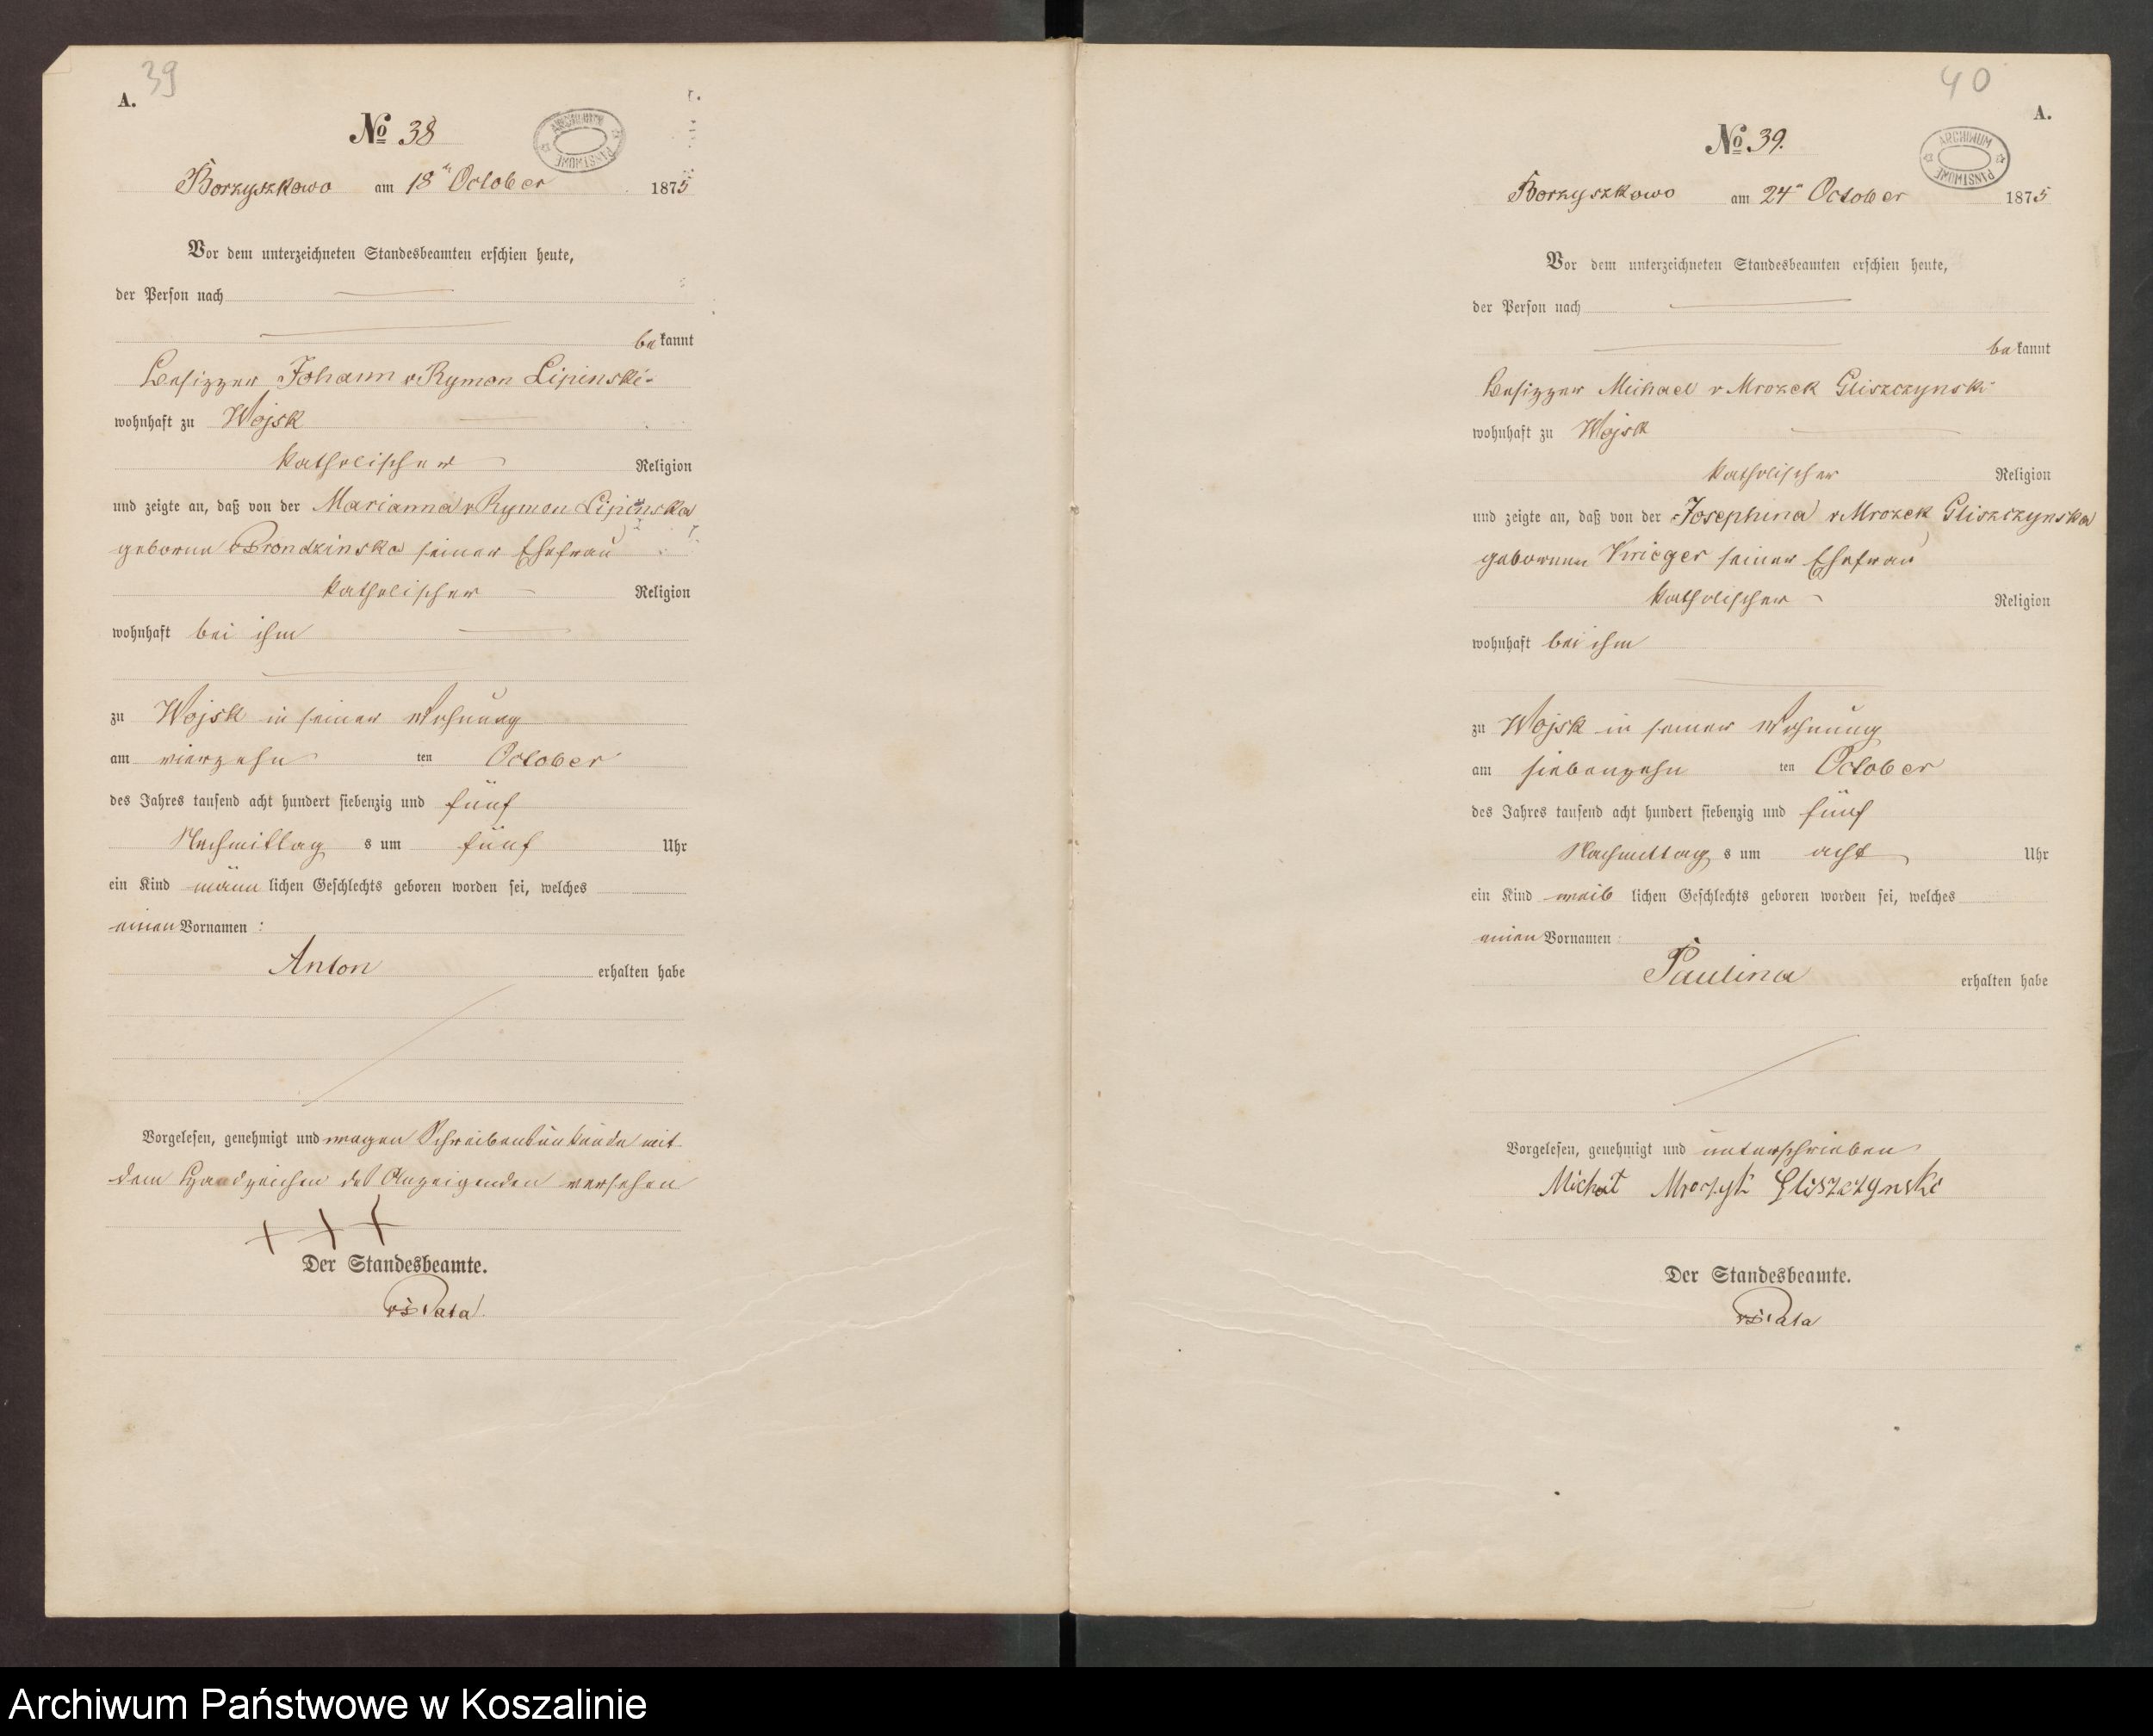 39
A.
ARCHIWUM PAŃSTWOWE
No 38
Borzyszkowo am 18ⁿ October 1875
Vor dem unterzeichneten Standesbeamten erschien heute,
der Person nach
be kannt
Besizzer Johann v Rymon Lipinski
wohnhaft zu Wojsk
katholischer Religion
und zeigte an, daß von der Marianna v Rymon Lipinska
geborne v Prondzinska seiner Ehefrau
katholischer Religion
wohnhaft bei ihm
zu Wojsk in seiner Wohnung
am vierzehn ten October
des Jahres tausend acht hundert siebenzig und fünf
Nachmittag s um fünf Uhr
ein Kind männ lichen Geschlechts geboren worden sei, welches
einen Vornamen :
Anton erhalten habe
Vorgelesen, genehmigt und wegen Schreibensunkunde mit
dem Handzeichen des Anzeigenden versehen
+ + +
Der Standesbeamte.
40
A.
ARCHIWUM PAŃSTWOWE
No 39.
Borzyszkowo am 24ⁿ October 1875
Vor dem unterzeichneten Standesbeamten erschien heute,
der Person nach
be kannt
Besizzer Michael v Mrozek Gliszczynski
wohnhaft zu Wojsk
katholischer Religion
und zeigte an, daß von der Josephina v Mrozek Gliszczynska
gebornen Krieger seiner Ehefrau
katholischer Religion
wohnhaft bei ihm
zu Wojsk in seiner Wohnung
am siebenzehn ten October
des Jahres tausend acht hundert siebenzig und fünf
Nachmittag s um acht Uhr
ein Kind weib lichen Geschlechts geboren worden sei, welches
einen Vornamen :
Paulina erhalten habe
Vorgelesen, genehmigt und unterschrieben
Michał Gliszczynski
Der Standesbeamte.
Archiwum Państwowe w Koszalinie